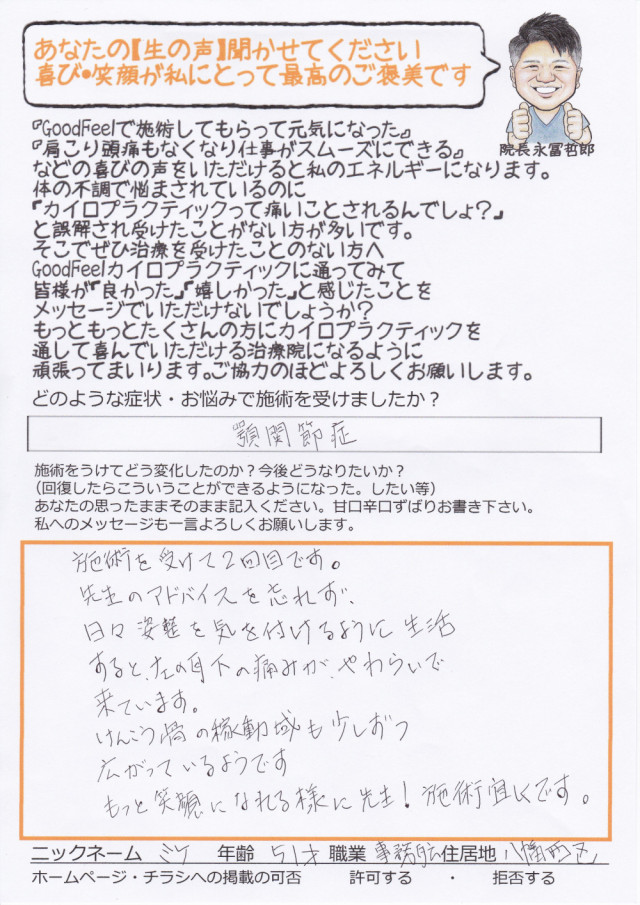 あなたの【生の声】聞かせてください
喜び•笑顔が私にとって最高のご褒美です
院長 永冨哲郎
『GoodFeelで施術してもらって元気になった』
『肩こり頭痛もなくなり仕事がスムーズにできる』
などの喜びの声をいただけると私のエネルギーになります。
体の不調で悩まされているのに
「カイロプラクティックって痛いことされるんでしょ?」
と誤解され受けたことがない方が多いです。
そこでぜひ治療を受けたことのない方へ
GoodFeelカイロプラクティックに通ってみて
皆様が「良かった」「嬉しかった」と感じたことを
メッセージでいただけないでしょうか?
もっともっとたくさんの方にカイロプラクティックを
通して喜んでいただける治療院になるように
頑張ってまいります。ご協力のほどよろしくお願いします。
どのような症状・お悩みで施術を受けましたか？
顎関節症
施術をうけてどう変化したのか？今後どうなりたいか？
（回復したらこういうことができるようになった。したい等）
あなたの思ったままそのまま記入ください。甘口辛口ずばりお書き下さい。
私へのメッセージも一言よろしくお願いします。
施術を受けて2回目です。
先生のアドバイスを忘れず、
日々姿勢を気を付けるように生活
すると、左の耳下の痛みが、やわらいで
来ています。
けんこう骨の稼動域も少しずつ
広がっているようです
もっと笑顔になれる様に先生!施術宜しくです。
ニックネーム ミケ 年齢 51才 職業 事務員 住居地 八幡西区
ホームページ・チラシへの掲載の可否 許可する ・ 拒否する